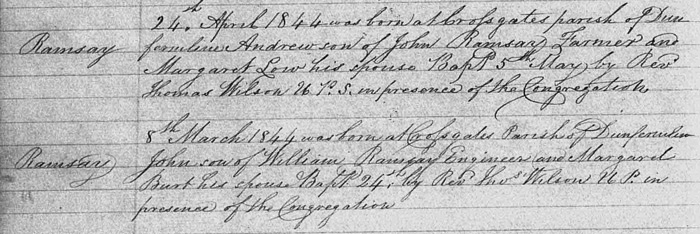 24th April 1844 was born at Crossgates parish of Dun
Ramsay fermline Andrew son of John Ramsay Farmer and
Margaret Low his spouse Bapt 5th May by Rev
Thomas Wilson U.P.S. in presence of the Congregation
8th March 1844 was born at Crossgates Parish of Dunfermline
Ramsay John son of William Ramsay Engineer and Margaret
Burt his spouse Bapt 24th by Revd Thos Wilson U.P. in
presence of the Congregation